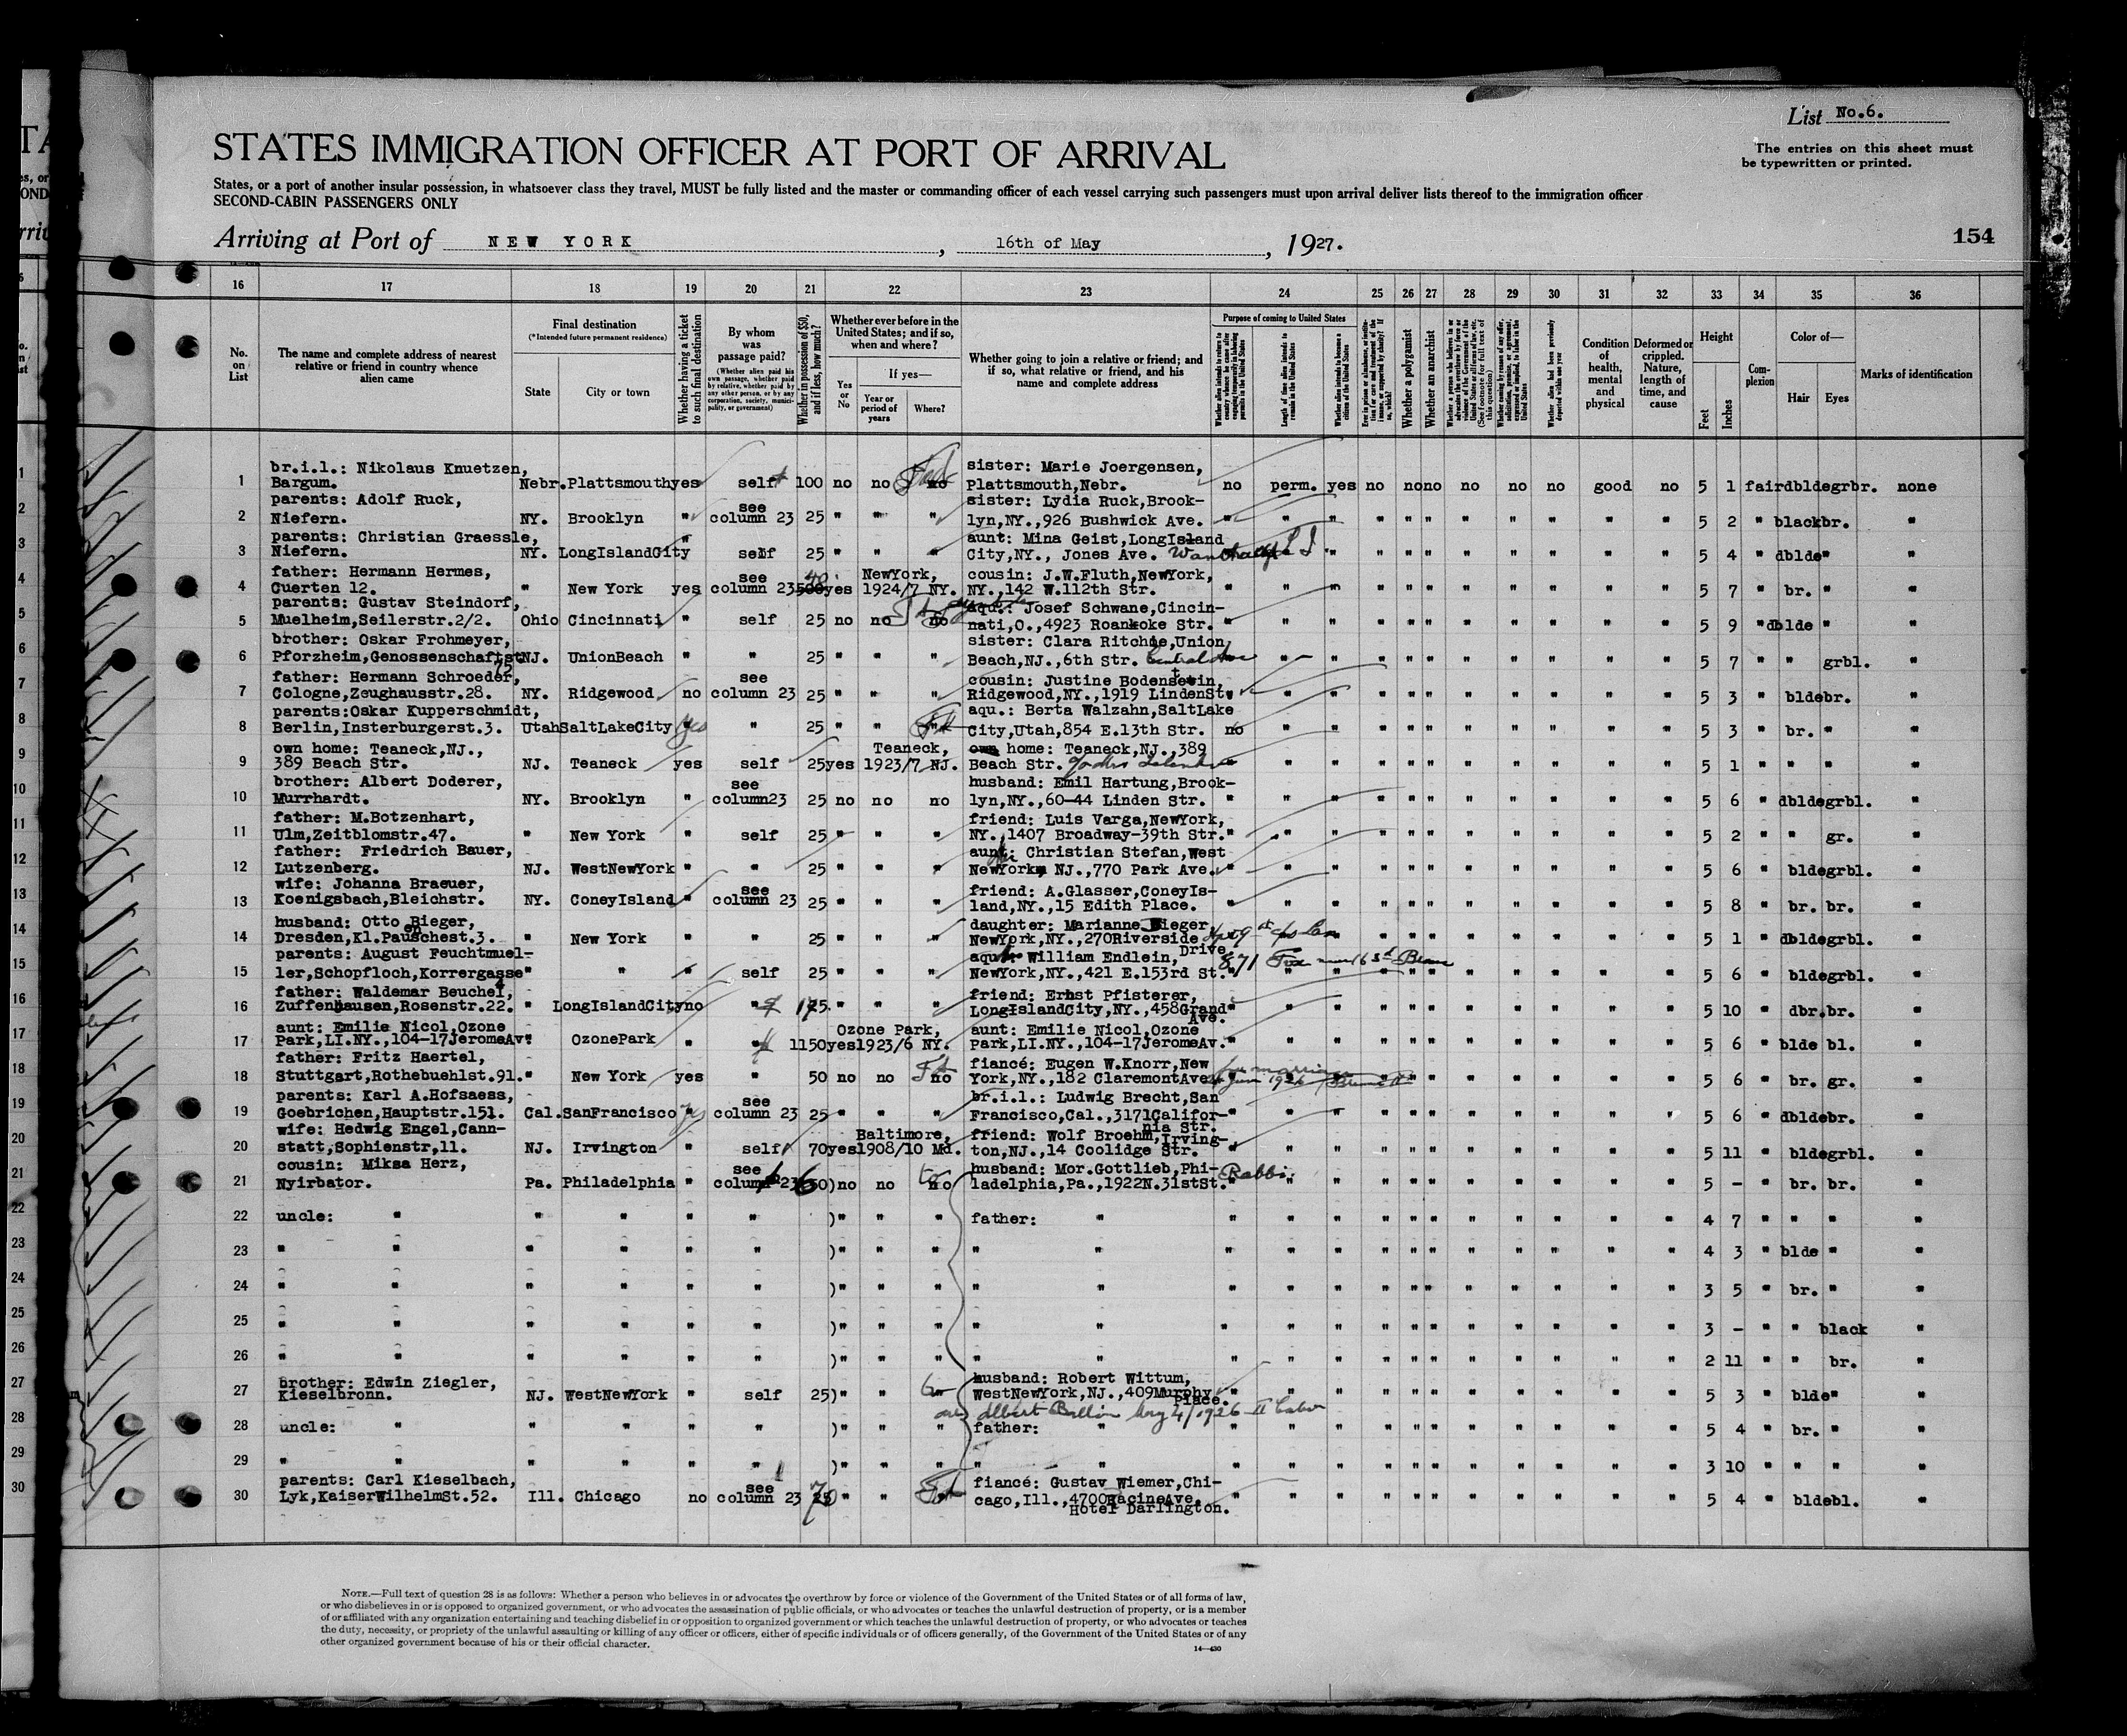 List No.6.
STATES IMMIGRATION OFFICER AT PORT OF ARRIVAL
The entries on this sheet must be typewritten or printed.
States, or a port of another insular possession, in whatsoever class they travel, MUST be fully listed and the master or commanding officer of each vessel carrying such passengers must upon arrival deliver lists thereof to the immigration officer
SECOND-CABIN PASSENGERS ONLY
Arriving at Port of NEW YORK, 16th of May, 1927.
154
16 17 18 19 20 21 22 23 24 25 26 27 28 29 30 31 32 33 34 35 36
No. on List
The name and complete address of nearest relative or friend in country whence alien came
Final destination
(*Intended future permanent residence)
State
City or town
Whether having a ticket to such final destination
By whom was passage paid?
(Whether alien paid his own passage, whether paid by relative, whether paid by any other person, or by any corporation, society, municipality, or government)
Whether in possession of $50, and if less, how much?
Whether ever before in the United States; and if so, when and where?
Yes or No
If yes—
Year or period of years
Where?
Whether going to join a relative or friend; and if so, what relative or friend, and his name and complete address
Purpose of coming to United States
Length of time alien intends to remain in the United States
Whether alien intends to become a citizen of the United States
Whether a polygamist
Whether an anarchist
Condition of health, mental and physical
Deformed or crippled. Nature, length of time, and cause
Height
Feet
Inches
Complexion
Color of—
Hair
Eyes
Marks of identification
br.i.l.: Nikolaus Knuetzen, sister: Marie Joergensen,
1 Bargum. Nebr. Plattsmouth yes self 100 no no no Plattsmouth,Nebr. no perm. yes no no no no no no good no 5 1 fair dblde grbr. none
parents: Adolf Ruck, see sister: Lydia Ruck,Brook-
2 Niefern. NY. Brooklyn " column 23 25 " " " lyn,NY.,926 Bushwick Ave. " " " " " " " " " " " 5 2 " black br. "
parents: Christian Graessle, aunt: Mina Geist,LongIsland
3 Niefern. NY. LongIslandCity " self 25 " " " City,NY., Jones Ave. " " " " " " " " " " 5 4 " dblde " "
father: Hermann Hermes, see 40 NewYork, cousin: J.W.Fluth,NewYork,
4 Cuerten 12. " New York yes column 23 500 yes 1924/7 NY. NY.,142 W.112th Str. " " " " " " " " " " " 5 7 " br. " "
parents: Gustav Steindorf, aqu.: Josef Schwane,Cincin-
5 Muelheim,Seilerstr.2/2. Ohio Cincinnati " self 25 no no no nati,O.,4923 Roanoke Str. " " " " " " " " " " " 5 9 " dblde " "
brother: Oskar Frohmeyer, sister: Clara Ritchie,Union
6 Pforzheim,Genossenschaftst. 75 NJ. UnionBeach " " 25 " " " Beach,NJ.,6th Str. Central Ave " " " " " " " " " " 5 7 " " grbl. "
father: Hermann Schroeder, see cousin: Justine Bodenstein,
7 Cologne,Zeughausstr.28. NY. Ridgewood no column 23 25 " " " Ridgewood,NY.,1919 LindenSt. " " " " " " " " " " " 5 3 " blde br. "
parents:Oskar Kupperschmidt, aqu.: Berta Walzahn,SaltLake
8 Berlin,Insterburgerst.3. Utah SaltLakeCity yes " 25 " " " City,Utah,854 E.13th Str. no " " " " " " " " " " 5 3 " br. " "
own home: Teaneck,NJ., Teaneck, own home: Teaneck,NJ.,389
9 389 Beach Str. NJ. Teaneck yes self 25 yes 1923/7 NJ. Beach Str. " " " " " " " " " " " 5 1 " " " "
brother: Albert Doderer, see husband: Emil Hartung,Brook-
10 Murrhardt. NY. Brooklyn " column23 25 no no no lyn,NY.,60-44 Linden Str. " " " " " " " " " " " 5 6 " dblde grbl. "
father: M.Botzenhart, friend: Luis Varga,NewYork,
11 Ulm,Zeitblomstr.47. " New York " self 25 " " " NY.,1407 Broadway-39th Str. " " " " " " " " " " " 5 2 " " gr. "
father: Friedrich Bauer, aunt: Christian Stefan,West
12 Lutzenberg. NJ. WestNewYork " " 25 " " " NewYork, NJ.,770 Park Ave. " " " " " " " " " " " 5 6 " blde grbl. "
wife: Johanna Braeuer, see friend: A.Glasser,ConeyIs-
13 Koenigsbach,Bleichstr. NY. ConeyIsland " column 23 25 " " " land,NY.,15 Edith Place. " " " " " " " " " " " 5 8 " br. br. "
husband: Otto Bieger, daughter: Marianne Bieger,
14 Dresden,Kl.Pauschest.3. " New York " " 25 " " " NewYork,NY.,270Riverside Drive. " " " " " " " " " " 5 1 " dblde grbl. "
parents: August Feuchtmuel- aqu. William Endlein,
15 ler,Schopfloch,Korrergasse " " " self 25 " " " NewYork,NY.,421 E.153rd St. 871 Fox " " " " " " " " " " 5 6 " blde grbl. "
father: Waldemar Beuchel, friend: Ernst Pfisterer,
16 Zuffenhausen,Rosenstr.22. " LongIslandCity no " " " " LongIslandCity,NY.,458Grand Ave. " " " " " " " " " " " 5 10 " dbr. br. "
aunt: Emilie Nicol,Ozone Ozone Park, aunt: Emilie Nicol,Ozone
17 Park,LI.NY.,104-17JeromeAv. " OzonePark " " 1150 yes 1923/6 NY. Park,LI.NY.,104-17JeromeAv. " " " " " " " " " " " 5 6 " blde bl. "
father: Fritz Haertel, fiancé: Eugen W.Knorr,New
18 Stuttgart,Rothebuehlst.91. " New York yes " 50 no no no York,NY.,182 ClaremontAve. " " " " " " " " " " 5 6 " br. gr. "
parents: Karl A.Hofsaess, see br.i.l.: Ludwig Brecht,San
19 Goebrichen,Hauptstr.151. Cal. SanFrancisco yes column 23 25 " " " Francisco,Cal.,3171Califor-nia Str. " " " " " " " " " " " 5 6 " dblde br. "
wife: Hedwig Engel,Cann- Baltimore, friend: Wolf Broehm,Irving-
20 statt,Sophienstr,11. NJ. Irvington " self 70 yes 1908/10 Md. ton,NJ.,14 Coolidge Str. " " " " " " " " " " " 5 11 " blde grbl. "
cousin: Miksa Herz, see husband: Mor.Gottlieb,Phi-
21 Nyirbator. Pa. Philadelphia " column 23 60) no no no ladelphia,Pa.,1922N.31stSt. Rabbi. " " " " " " " " " " " 5 - " br. br. "
22 uncle: " " " " " )" " " father: " " " " " " " " " " " " 4 7 " " " "
23 " " " " " " )" " " " " " " " " " " " " " " " " 4 3 " blde " "
24 " " " " " " )" " " " " " " " " " " " " " " " " 3 5 " br. " "
25 " " " " " " )" " " " " " " " " " " " " " " " " 3 - " " black "
26 " " " " " " )" " " " " " " " " " " " " " " " " 2 11 " " br. "
brother: Edwin Ziegler, husband: Robert Wittum,
27 Kieselbronn. NJ. WestNewYork " self 25)" " WestNewYork,NJ.,409Murphy Place. " " " " " " " " " " " 5 3 " blde " "
28 uncle: " " " " " )" " " father: " " " " " " " " " " " " 5 4 " br. " "
29 " " " " " " )" " " " " " " " " " " " " " " " " 3 10 " " " "
parents: Carl Kieselbach, see fiancé: Gustav Wiemer,Chi-
30 Lyk,KaiserWilhelmSt.52. Ill. Chicago no column 23 70 " " " cago,Ill.,4700RacineAve, Hotel Darlington. " " " " " " " " " " " 5 4 " blde bl. "
NOTE.—Full text of question 28 is as follows: Whether a person who believes in or advocates the overthrow by force or violence of the Government of the United States or of all forms of law,
or who disbelieves in or is opposed to organized government, or who advocates the assassination of public officials, or who advocates or teaches the unlawful destruction of property, or is a member
of or affiliated with any organization entertaining and teaching disbelief in or opposition to organized government or which teaches the unlawful destruction of property, or who advocates or teaches
the duty, necessity, or propriety of the unlawful assaulting or killing of any officer or officers, either of specific individuals or of officers generally, of the Government of the United States or of any
other organized government because of his or their official character.
14—430